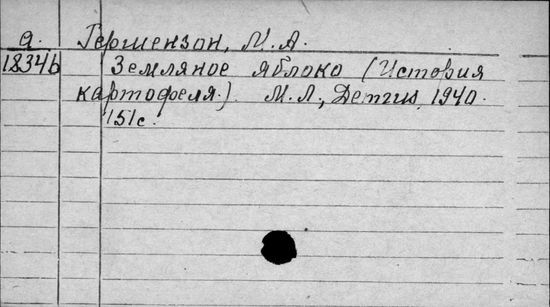 а. Гершензон, М. А.
1834b Земляное яблоко (История
картофеля.) М. Л., Детгиз, 1940.
151с.